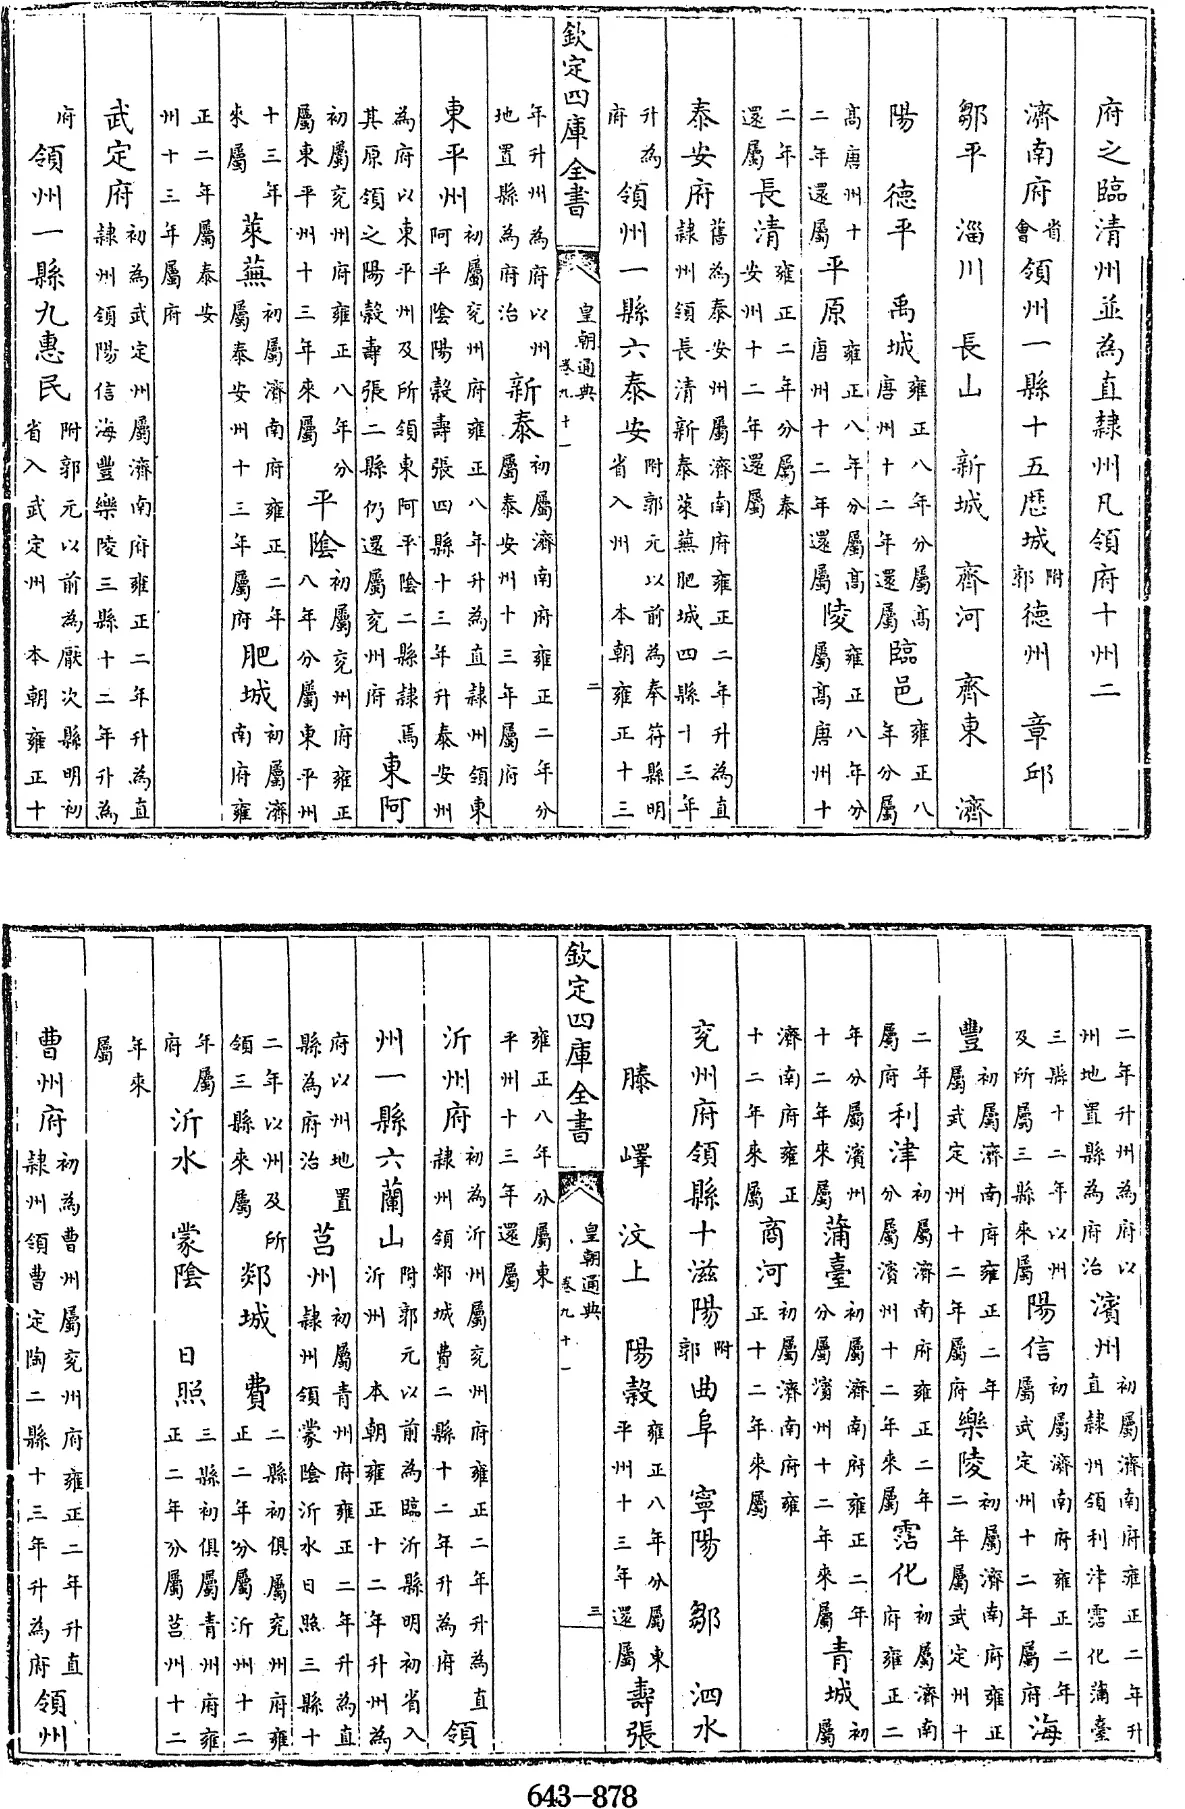 府之臨清州並為直隸州凡領府十州二
濟南府省會領州一縣十五歴城附郭德州 章邱
鄒平 淄川 長山 新城 齊河 齊東 濟
陽 德平 禹城雍正八年分屬高唐州十二年還屬臨邑雍正八年分屬
高唐州十二年還屬平原雍正八年分屬高唐州十二年還屬陵雍正八年分屬高唐州十
二年還屬長清雍正二年分屬泰安州十二年還屬
泰安府舊為泰安州屬濟南府雍正二年升為直隸州領長清新泰萊蕪肥城四縣十三年
升為府領州一縣六泰安附郭元以前為奉符縣明省入州 本朝雍正十三
欽定四庫全書 皇朝通典 卷九十一 二
年升州為府以州地置縣為府治新泰初屬濟南府雍正二年分屬泰安州十三年屬府
東平州初屬兗州府雍正八年升為直隸州領東阿平陰陽穀壽張四縣十三年升泰安州
為府以東平州及所領東阿平陰二縣隸焉其原領之陽穀壽張二縣仍還屬兗州府東阿
初屬兗州府雍正八年分屬東平州十三年來屬平陰初屬兗州府雍正八年分屬東平州
十三年來屬萊蕪初屬濟南府雍正二年屬泰安州十三年屬府肥城初屬濟南府雍
正二年屬泰安州十三年屬府
武定府初為武定州屬濟南府雍正二年升為直隸州領陽信海豐樂陵三縣十二年升為
府領州一縣九惠民附郭元以前為厭次縣明初省入武定州 本朝雍正十
二年升州為府以州地置縣為府治濱州初屬濟南府雍正二年升直隸州領利津霑化蒲臺
三縣十二年以州及所屬三縣來屬陽信初屬濟南府雍正二年屬武定州十二年屬府海
豐初屬濟南府雍正二年屬武定州十二年屬府樂陵初屬濟南府雍正二年屬武定州十
二年屬府利津初屬濟南府雍正二年分屬濱州十二年來屬霑化初屬濟南府雍正二
年分屬濱州十二年來屬蒲臺初屬濟南府雍正二年分屬濱州十二年來屬青城初屬
濟南府雍正十二年來屬商河初屬濟南府雍正十二年來屬
兗州府領縣十滋陽附郭曲阜 寧陽 鄒 泗水
滕 嶧 汶上 陽穀雍正八年分屬東平州十三年還屬壽張
欽定四庫全書 皇朝通典 卷九十一 三
雍正八年分屬東平州十三年還屬
沂州府初為沂州屬兗州府雍正二年升為直隸州領郯城費二縣十二年升為府領
州一縣六蘭山附郭元以前為臨沂縣明初省入沂州 本朝雍正十二年升州為
府以州地置縣為府治莒州初屬青州府雍正二年升為直隸州領蒙陰沂水日照三縣十
二年以州及所領三縣來屬郯城 費二縣初俱屬兗州府雍正二年分屬沂州十二
年屬府沂水 蒙陰 日照三縣初俱屬青州府雍正二年分屬莒州十二
年來屬
曹州府初為曹州屬兗州府雍正二年升直隸州領曹定陶二縣十三年升為府領州
643-878